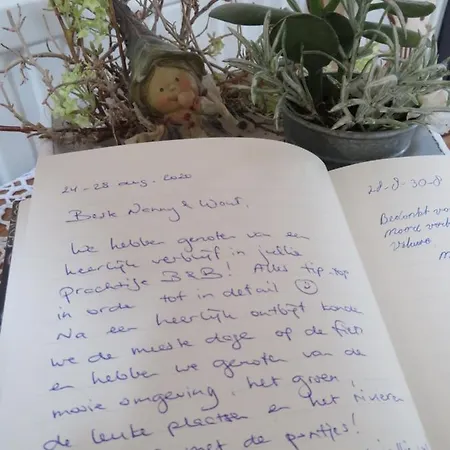 24-28 aug. 2020
Beste Nenny & Wout,
We hebben genoten van een
heerlijk verblijf in jullie
prachtige B&B! Alles tip-top
in orde tot in detail ☺
Na een heerlijk ontbijt konden
we de meeste dage op de fiets
en hebben we genoten van de
mooie omgeving, het groen,
de leuke plaatsen en het rivieren
met de pontjes!
28-8-30-8
Bedankt vo